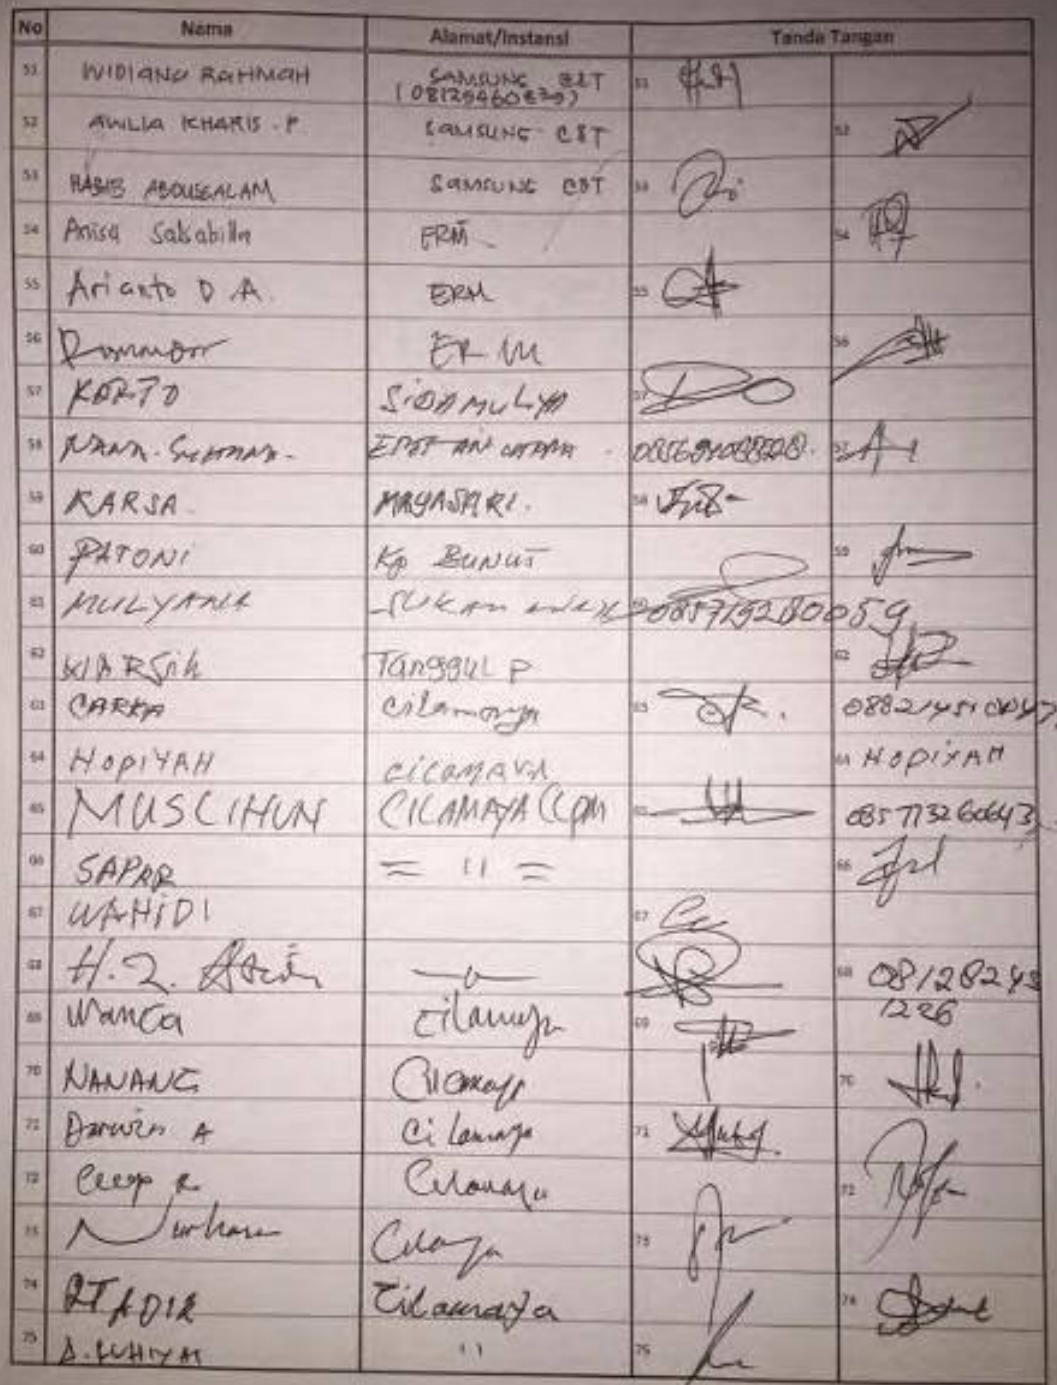 No Nama Alamat/Instansi Tanda Tangan
51 WIDIANO RAHMAH SAMSUNG C&T 51
52 AWLIA KHARIS . P SAMSUNG C&T 52
53 HABIB ABDUSSALAM SAMSUNG C&T 53
54 Anisa Salsabilla ERM 54
55 Arianto D A. ERM 55
56 ERM 56
57 KARTO SIDAMULYA 57
58 57
59 KARSA. MAYASARI. 58
60 PATONI Kp BUNUT 59
61 MULYANA 085715280059
62 WARSih Tanggul P 62
63 CARKA Cilamaya 63
64 HOPIYAH CILAMAYA 64 HOPIYAH
65 MUSLIHUN CILAMAYA 65 085713260643
66 SAPAR = 11 = 66
67 WAHIDI 67
68 H. 68 08128243
69 Wanca Cilamaya 69 1226
70 NANANG Cilamaya 70
71 Darwin A Cilamaya 71
72 Cecep R Cilamaya 72
73 Nurhasan Cilamaya 73
74 RT ADIR Cilamaya 74
75 11 75